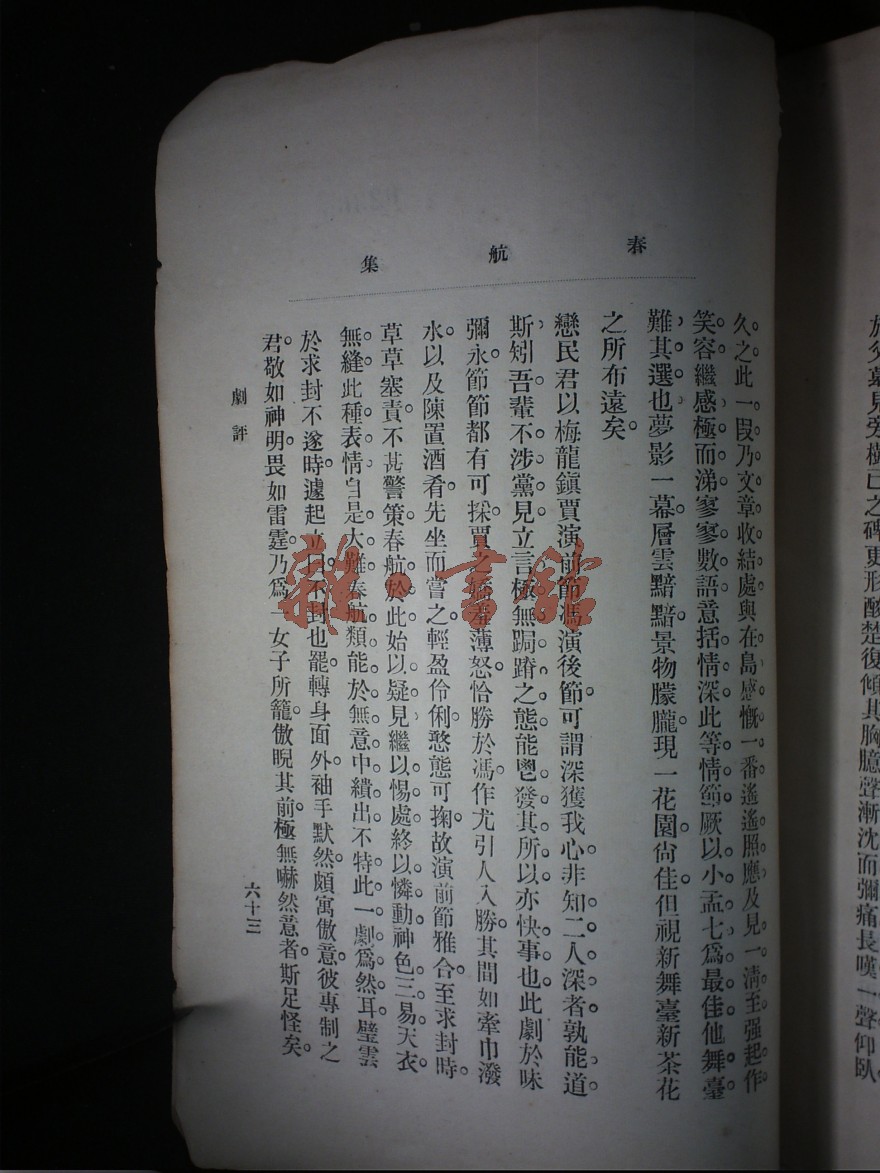 春航集
久之此一段乃文章收結處與在島感慨一番遙遙照應及見一清至强起作
笑容繼感極而涕寥寥數語意括情深此等情節厥以小孟七爲最佳他舞臺
難其選也夢影一幕層雲黯黯景物朦朧現一花園尙佳但視新舞臺新茶花
之所布遠矣
戀民君以梅龍鎭賈演前節馮演後節可謂深獲我心非知二人深者孰能道
斯矧吾輩不涉黨見立言極無跼蹐之態能鬯發其所以亦快事也此劇於味
彌永節節都有可採賈之嬌羞薄怒恰勝於馮作尤引人入勝其間如牽巾潑
水以及陳置酒肴先坐而嘗之輕盈伶俐憨態可掬故演前節雅合至求封時
草草塞責不甚警策春航於此始以疑見繼以惕處終以憐動神色三易天衣
無縫此種表情自是大難春航類能於無意中繢出不特此一劇爲然耳璧雲
於求封不遂時遽起立曰不封也罷轉身面外袖手默然頗寓傲意彼專制之
君敬如神明畏如雷霆乃爲一女子所籠傲睨其前極無嚇然意者斯足怪矣
劇評
六十三
於父墓見旁樹已之碑更形酸楚復傾其胸臆聲漸沈而彌痛長嘆一聲仰臥
雜·書館